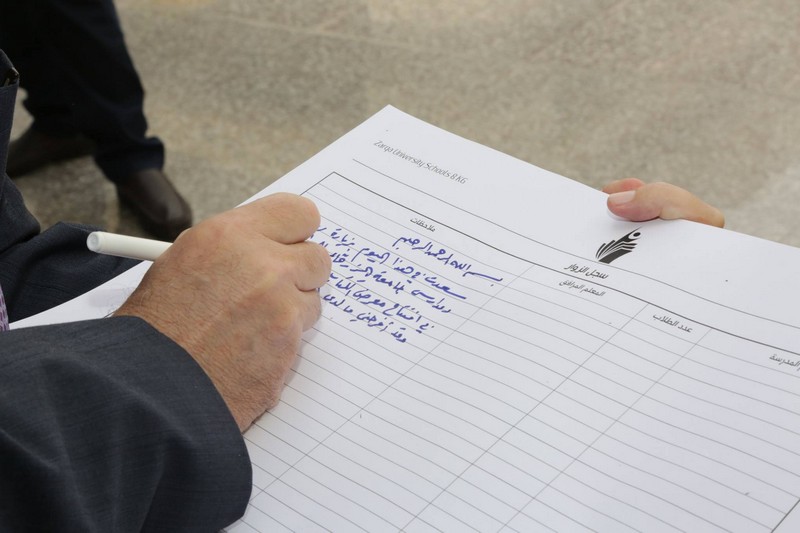 Zarqa University Schools & KG
سجل الزوار
المدرسة
عدد الطلاب
المعلم المرافق
ملاحظات
بسم الله الرحمن الرحيم
سعدت في هذا اليوم بزيارة
ومدارس جامعة الزرقاء
في افتتاح معرض
وقد أعجبني ما